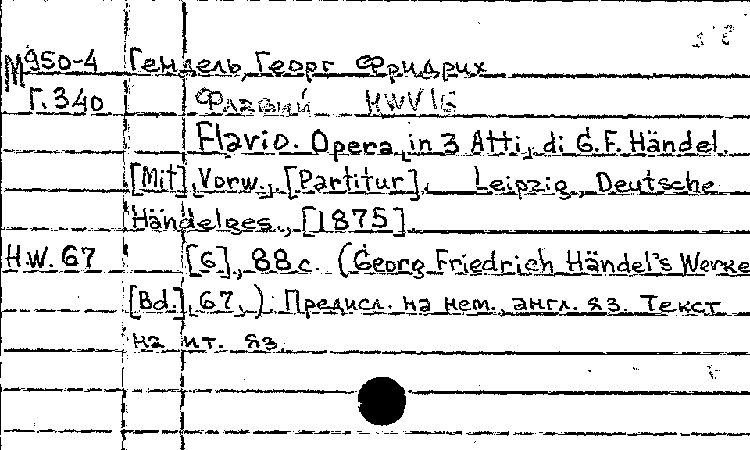 М950-4 Гендель, Георг Фридрих
Г.340 Флавий HWV16
Flavio. Opera in 3 Atti, di G.F. Händel.
[Mit] Vorw., [Partitur]. Leipzig, Deutsche
Händelges., [1875]
H.W. 67 [6], 88 с. (Georg Friedrich Händel's Werke
[Bd.] 67.) Предисл. на нем., англ. яз. Текст
на ит. яз.